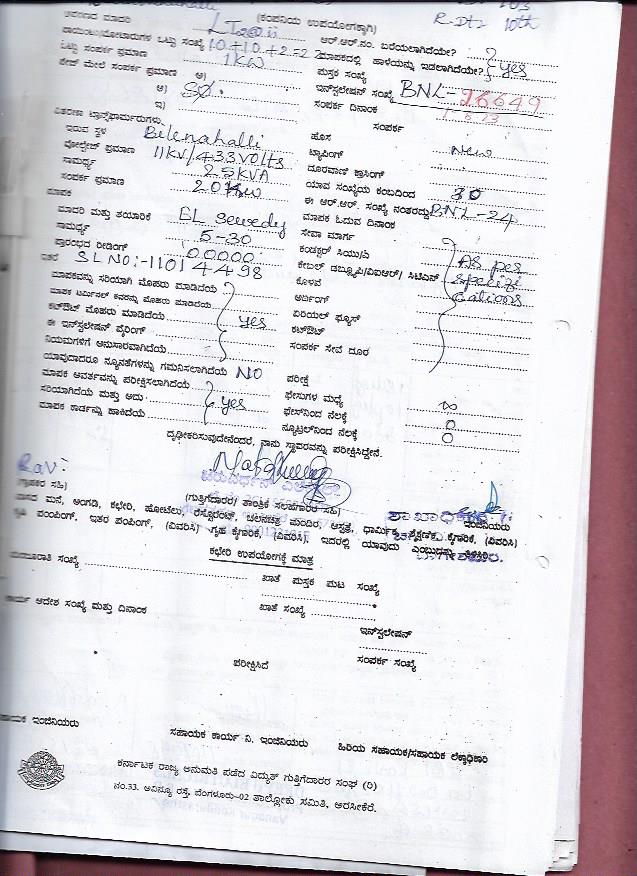 (ಕಂಪನಿಯ ಉಪಯೋಗಕ್ಕಾಗಿ) R. Dt: 10th
ಮಾದರಿ LT2aii ಆರ್.ಆರ್.ನಂ. ಬರೆಯಲಾಗಿದೆಯೇ?
ಪಾಯಿಂಟು/ಮೋಟಾರುಗಳ ಒಟ್ಟು ಸಂಖ್ಯೆ 10+10+2=22 ಮಾಪಕದಲ್ಲಿ ಹಾಳೆಯನ್ನು ಇಡಲಾಗಿದೆಯೇ? yes
ಒಟ್ಟು ಸಂಪರ್ಕ ಪ್ರಮಾಣ 1KW ಪುಸ್ತಕ ಸಂಖ್ಯೆ
ಫೇಜ್ ಮೇಲೆ ಸಂಪರ್ಕ ಪ್ರಮಾಣ ಅ) ಇನ್‌ಸ್ಟಲೇಷನ್ ಸಂಖ್ಯೆ BNL-26649
ಆ) ಸಂಪರ್ಕ ದಿನಾಂಕ
ಇ) ಸಂಪರ್ಕ
ವಿತರಣಾ ಟ್ರಾನ್ಸ್‌ಫಾರ್ಮರುಗಳು ಹೊಸ New
ಇರುವ ಸ್ಥಳ Bilenahalli ಟ್ಯಾಪಿಂಗ್
ವೋಲ್ಟೇಜ್ ಪ್ರಮಾಣ 11KV/433Volts ದೂರವಾಣಿ ಕ್ರಾಸಿಂಗ್
ಸಾಮರ್ಥ್ಯ 25KVA ಯಾವ ಸಂಖ್ಯೆಯ ಕಂಬದಿಂದ 30
ಸಂಪರ್ಕ ಪ್ರಮಾಣ 20KW ಈ ಆರ್.ಆರ್. ಸಂಖ್ಯೆ ನಂತರದ್ದು BNL-24
ಮಾಪಕ ಮಾಪಕ ಓದುವ ದಿನಾಂಕ
ಮಾದರಿ ಮತ್ತು ತಯಾರಿಕೆ EL Sewedy ಸೇವಾ ಮಾರ್ಗ
ಸಾಮರ್ಥ್ಯ 5-30 ಕಂಡಕ್ಟರ್ ಸಿಯು/ಟಿ As per
ಪ್ರಾರಂಭದ ರೀಡಿಂಗ್ 00000 ಕೇಬಲ್ ಡಬ್ಲ್ಯೂಪಿ/ವಿಐಆರ್/ ಸಿಟಿಎಸ್
ಇತರೆ SL NO:-11014498 ಕೊಳವೆ
ಮಾಪಕವನ್ನು ಸರಿಯಾಗಿ ಮೊಹರು ಮಾಡಿದೆಯೆ ಅರ್ಥಿಂಗ್
ಮಾಪಕ ಟರ್ಮಿನಲ್ ಕವರನ್ನು ಮೊಹರು ಮಾಡಿದೆಯೆ ಏರಿಯಲ್ ಫ್ಯೂಸ್
ಕಟ್‌ಔಟ್ ಮೊಹರು ಮಾಡಿದೆಯೆ yes ಕಟ್‌ಔಟ್
ಈ ಇನ್‌ಸ್ಟಲೇಷನ್ ವೈರಿಂಗ್ ಸಂಪರ್ಕ ಸೇವೆ ದೂರ
ನಿಯಮಗಳಿಗೆ ಅನುಸಾರವಾಗಿದೆಯೆ
ಯಾವುದಾದರೂ ನ್ಯೂನತೆಗಳನ್ನು ಗಮನಿಸಲಾಗಿದೆಯೆ NO ಪರೀಕ್ಷೆ
ಮಾಪಕ ಆವರ್ತವನ್ನು ಪರೀಕ್ಷಿಸಲಾಗಿದೆಯೆ ಫೇಸುಗಳ ಮಧ್ಯೆ ∞
ಸರಿಯಾಗಿದೆಯೆ ಮತ್ತು ಅದು yes ಫೇಸ್‌ನಿಂದ ನೆಲಕ್ಕೆ 0
ಮಾಪಕ ಕಾರ್ಡನ್ನು ಹಾಕಿದೆಯೆ ನ್ಯೂಟ್ರಲ್‌ನಿಂದ ನೆಲಕ್ಕೆ 0
ದೃಢೀಕರಿಸುವುದೇನೆಂದರೆ, ನಾನು ಸ್ಥಾವರವನ್ನು ಪರೀಕ್ಷಿಸಿದ್ದೇನೆ.
Ravi
(ಗ್ರಾಹಕರ ಸಹಿ) (ಗುತ್ತಿಗೆದಾರರ/ ತಾಂತ್ರಿಕ ಸಲಹೆಗಾರರ ಸಹಿ) ಇಂಜಿನಿಯರು
ವಾಸದ ಮನೆ, ಅಂಗಡಿ, ಕಛೇರಿ, ಹೋಟೆಲು, ರೆಸ್ಟೋರೆಂಟ್, ಚಲನಚಿತ್ರ ಮಂದಿರ, ಆಸ್ಪತ್ರೆ, ಧಾರ್ಮಿಕ, ಶೈಕ್ಷಣಿಕ, ಕೈಗಾರಿಕೆ, (ವಿವರಿಸಿ)
ಕೃಷಿ ಪಂಪಿಂಗ್, ಇತರ ಪಂಪಿಂಗ್, (ವಿವರಿಸಿ) ಗೃಹ ಕೈಗಾರಿಕೆ, (ವಿವರಿಸಿ), ಇದರಲ್ಲಿ ಯಾವುದು ಎಂಬುದನ್ನು ತಿಳಿಸಿರಿ
ಕಛೇರಿ ಉಪಯೋಗಕ್ಕೆ ಮಾತ್ರ
ಸಂಖ್ಯೆ ಖಾತೆ ಪುಸ್ತಕ ಪುಟ ಸಂಖ್ಯೆ
ಕಾರ್ಯ ಆದೇಶ ಸಂಖ್ಯೆ ಮತ್ತು ದಿನಾಂಕ ಖಾತೆ ಸಂಖ್ಯೆ
ಇನ್‌ಸ್ಟಲೇಷನ್
ಪರೀಕ್ಷಿಸಿದೆ ಸಂಪರ್ಕ ಸಂಖ್ಯೆ
ಸಹಾಯಕ ಇಂಜಿನಿಯರು ಸಹಾಯಕ ಕಾರ್ಯ ನಿ. ಇಂಜಿನಿಯರು ಹಿರಿಯ ಸಹಾಯಕ/ಸಹಾಯಕ ಲೆಕ್ಕಾಧಿಕಾರಿ
ಕರ್ನಾಟಕ ರಾಜ್ಯ ಅನುಮತಿ ಪಡೆದ ವಿದ್ಯುತ್ ಗುತ್ತಿಗೆದಾರರ ಸಂಘ (ರಿ)
ನಂ.33. ಅವಿನ್ಯೂ ರಸ್ತೆ, ಬೆಂಗಳೂರು-02 ತಾಲ್ಲೋಕು ಸಮಿತಿ, ಅರಸೀಕೆರೆ.